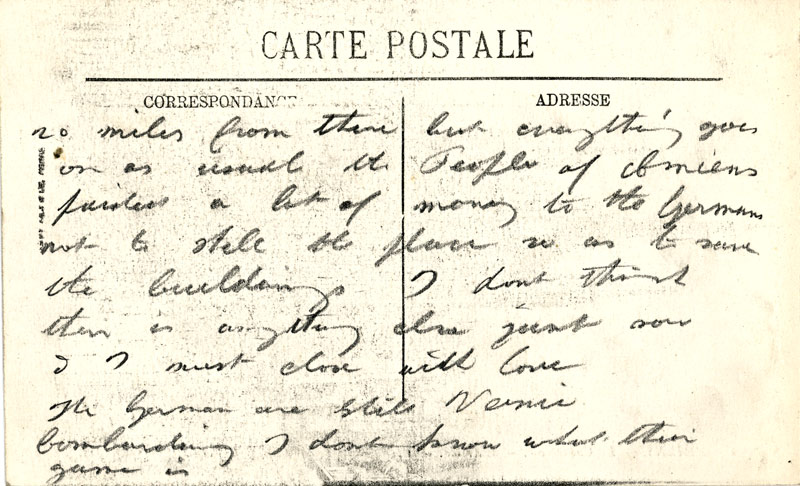 CARTE POSTALE
CORRESPONDANCE
ADRESSE
20 miles from there but everything goes
on as usual the People of Amiens
a lot of money to the Germans
not to shell the place so as to save
the buildings I dont think
there is anything else just now
& I must close with love
The German are still Vernie
bombarding I dont know what their
game is